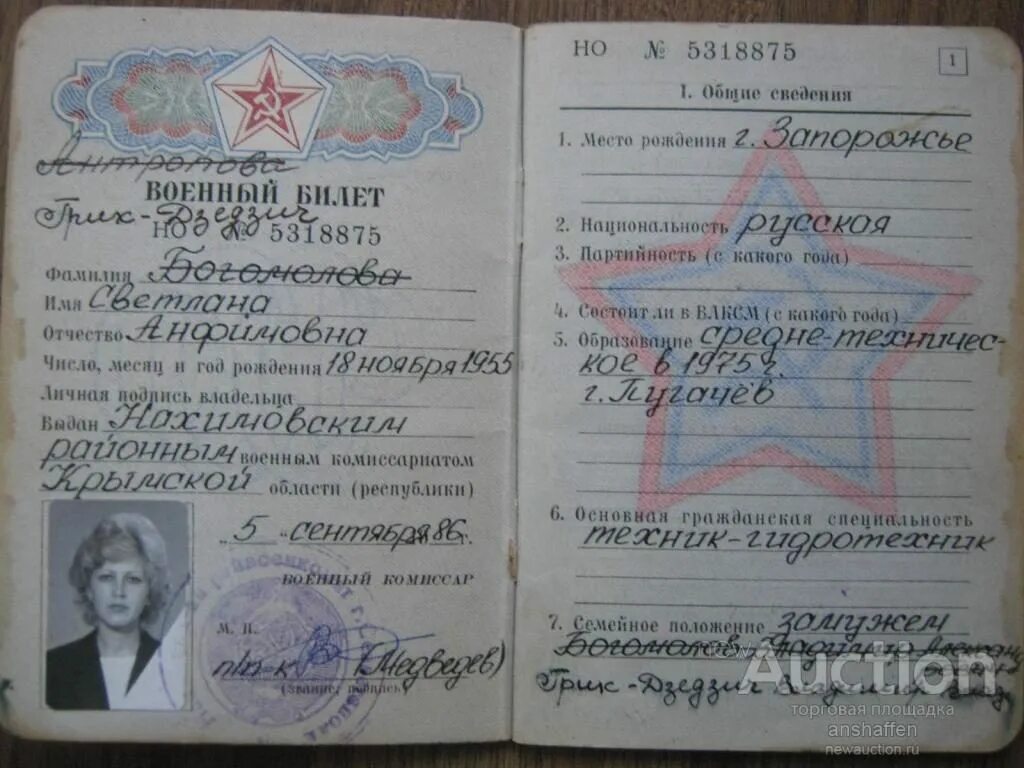 Антропова
ВОЕННЫЙ БИЛЕТ
Грик-Дзедзич
НО № 5318875
Фамилия Богомолова
Имя Светлана
Отчество Анфимовна
Число, месяц и год рождения 18 ноября 1955
Личная подпись владельца
Выдан Нахимовским
районным военным комиссариатом
Крымской области (республики)
„5" сентября 86 г.
ВОЕННЫЙ КОМИССАР
М. П.
п/п-к (Медведев)
(звание, подпись)
НО № 5318875
1
I. Общие сведения
1. Место рождения г. Запорожье
2. Национальность русская
3. Партийность (с какого года)
4. Состоит ли в ВЛКСМ (с какого года)
5. Образование средне-техничес-
кое в 1975 г.
г. Пугачёв
6. Основная гражданская специальность
техник-гидротехник
7. Семейное положение замужем
Богомолов
Грик-Дзедзич Владимир
Auction
торговая площадка
anshaffen
newauction.ru